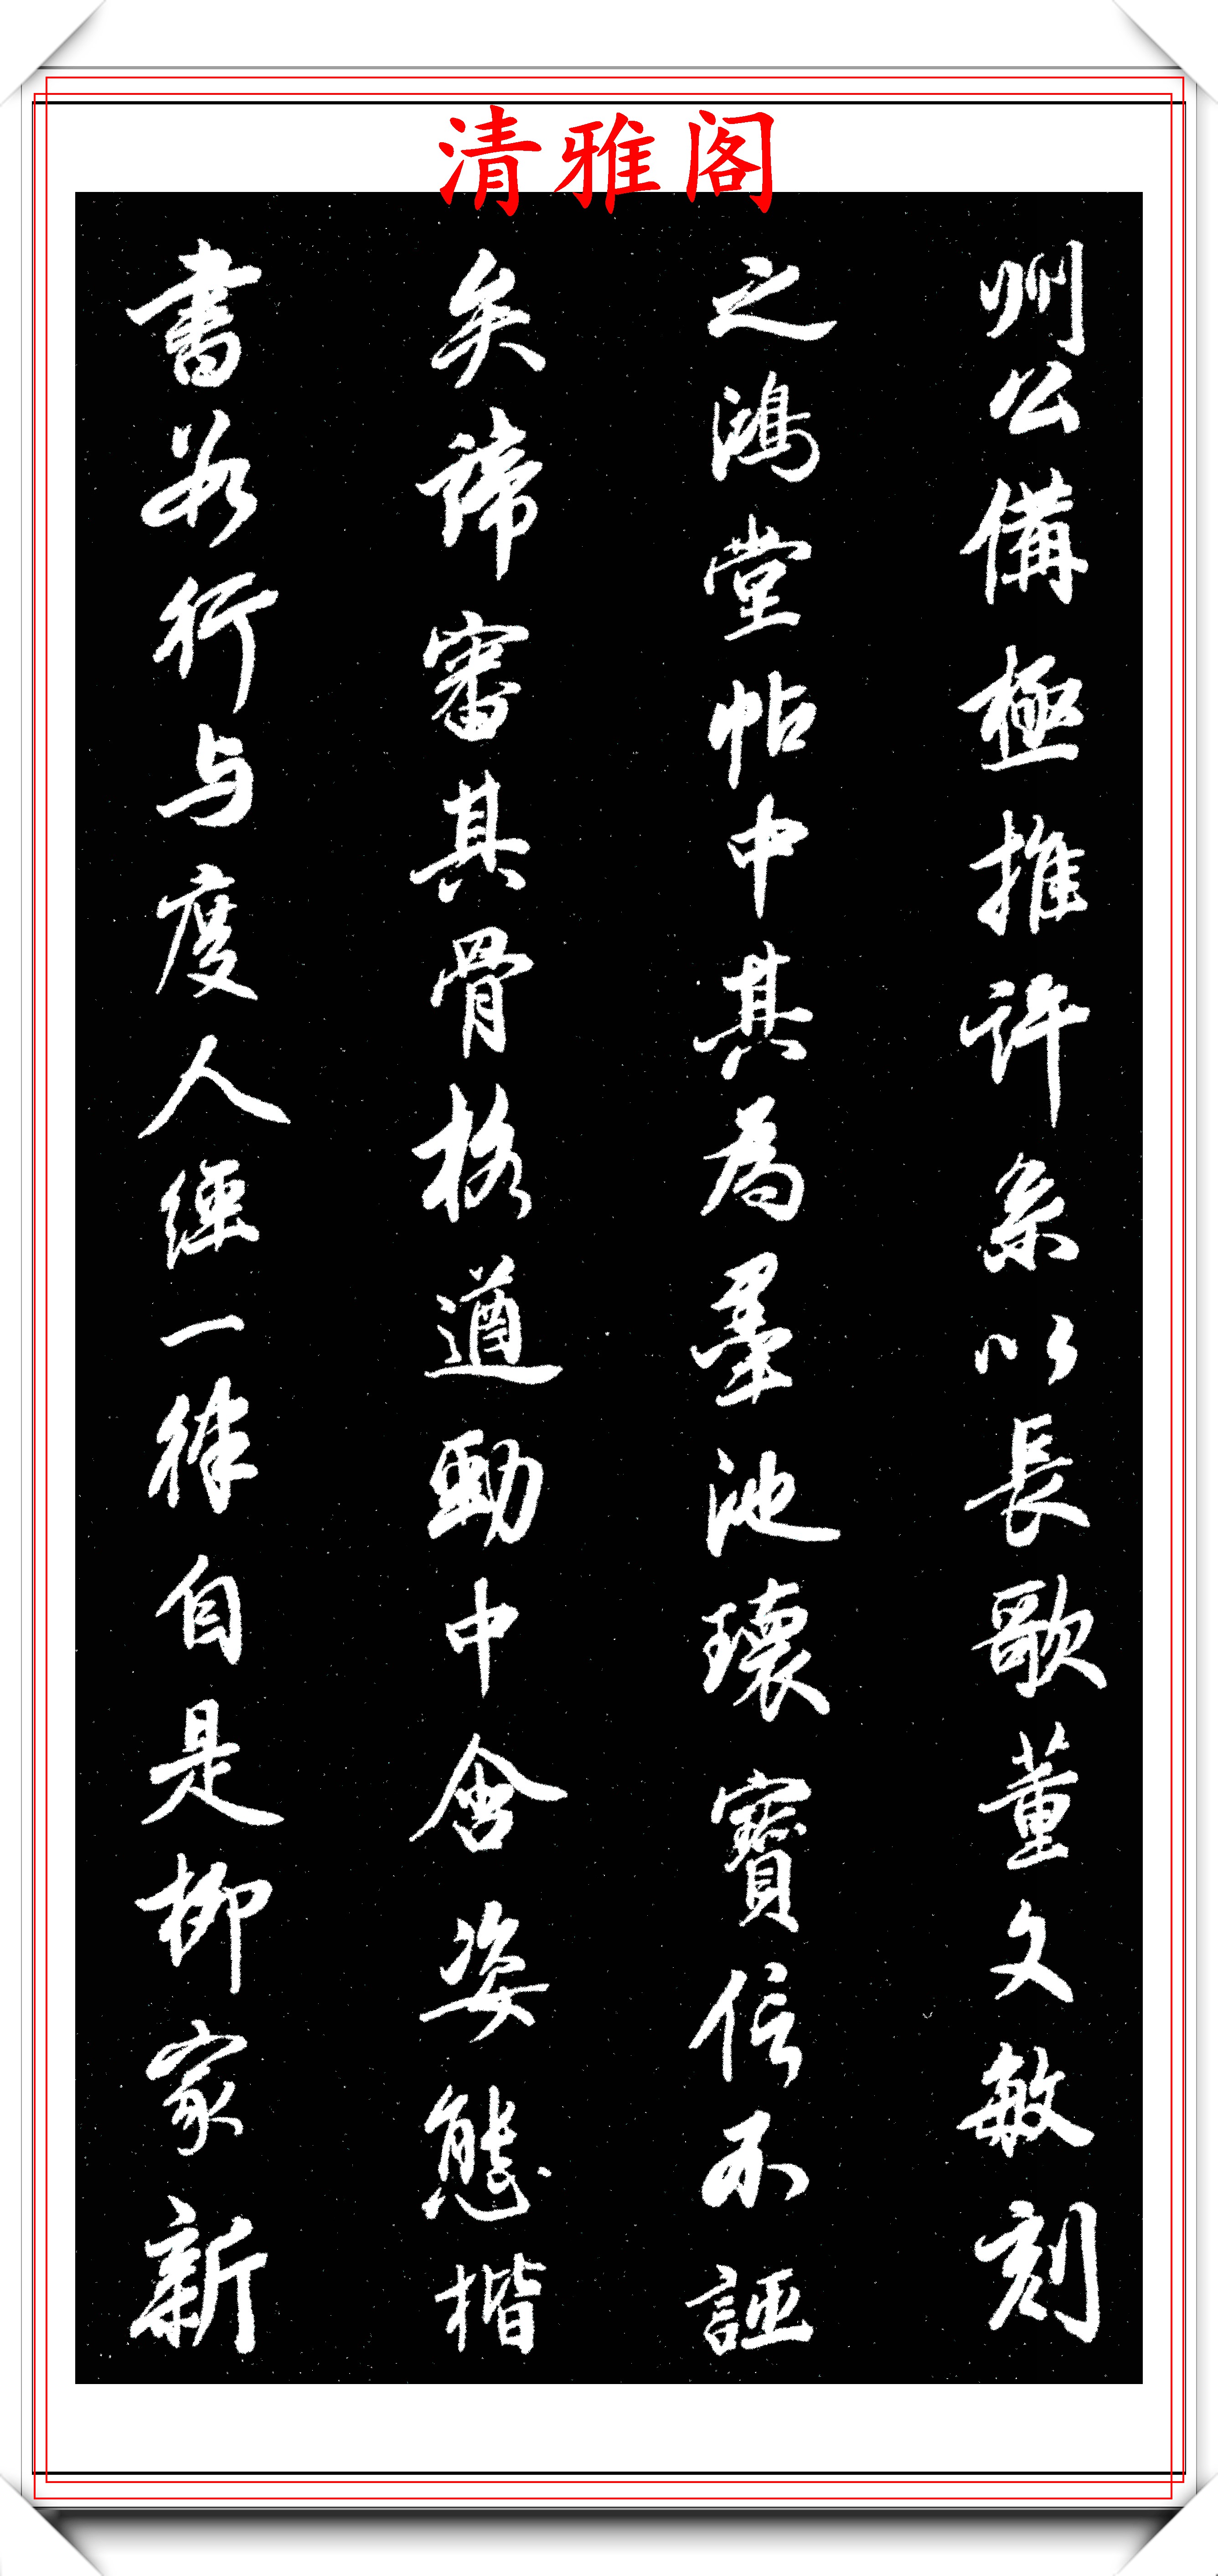 清雅阁
州公備極推許系以長歌董文敏刻
之鴻堂帖中其為墨池瓌寶信不誣
矣諦審其骨格遒勁中含姿態楷
書若行与度人經一律自是柳家新